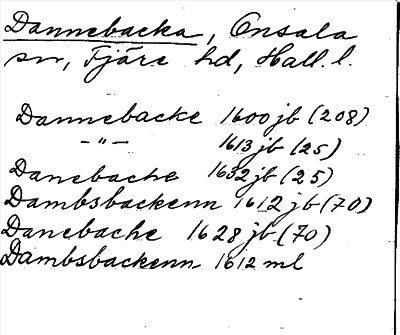 Dannebacka, Onsala
sn, Fjäre hd, Hall. l.
Dannebacke 1600 jb (208)
-"- 1613 jb (25)
Danebache 1632 jb (25)
Dambsbackenn 1612 jb (70)
Danebache 1628 jb (70)
Dambsbackenn 1612 ml